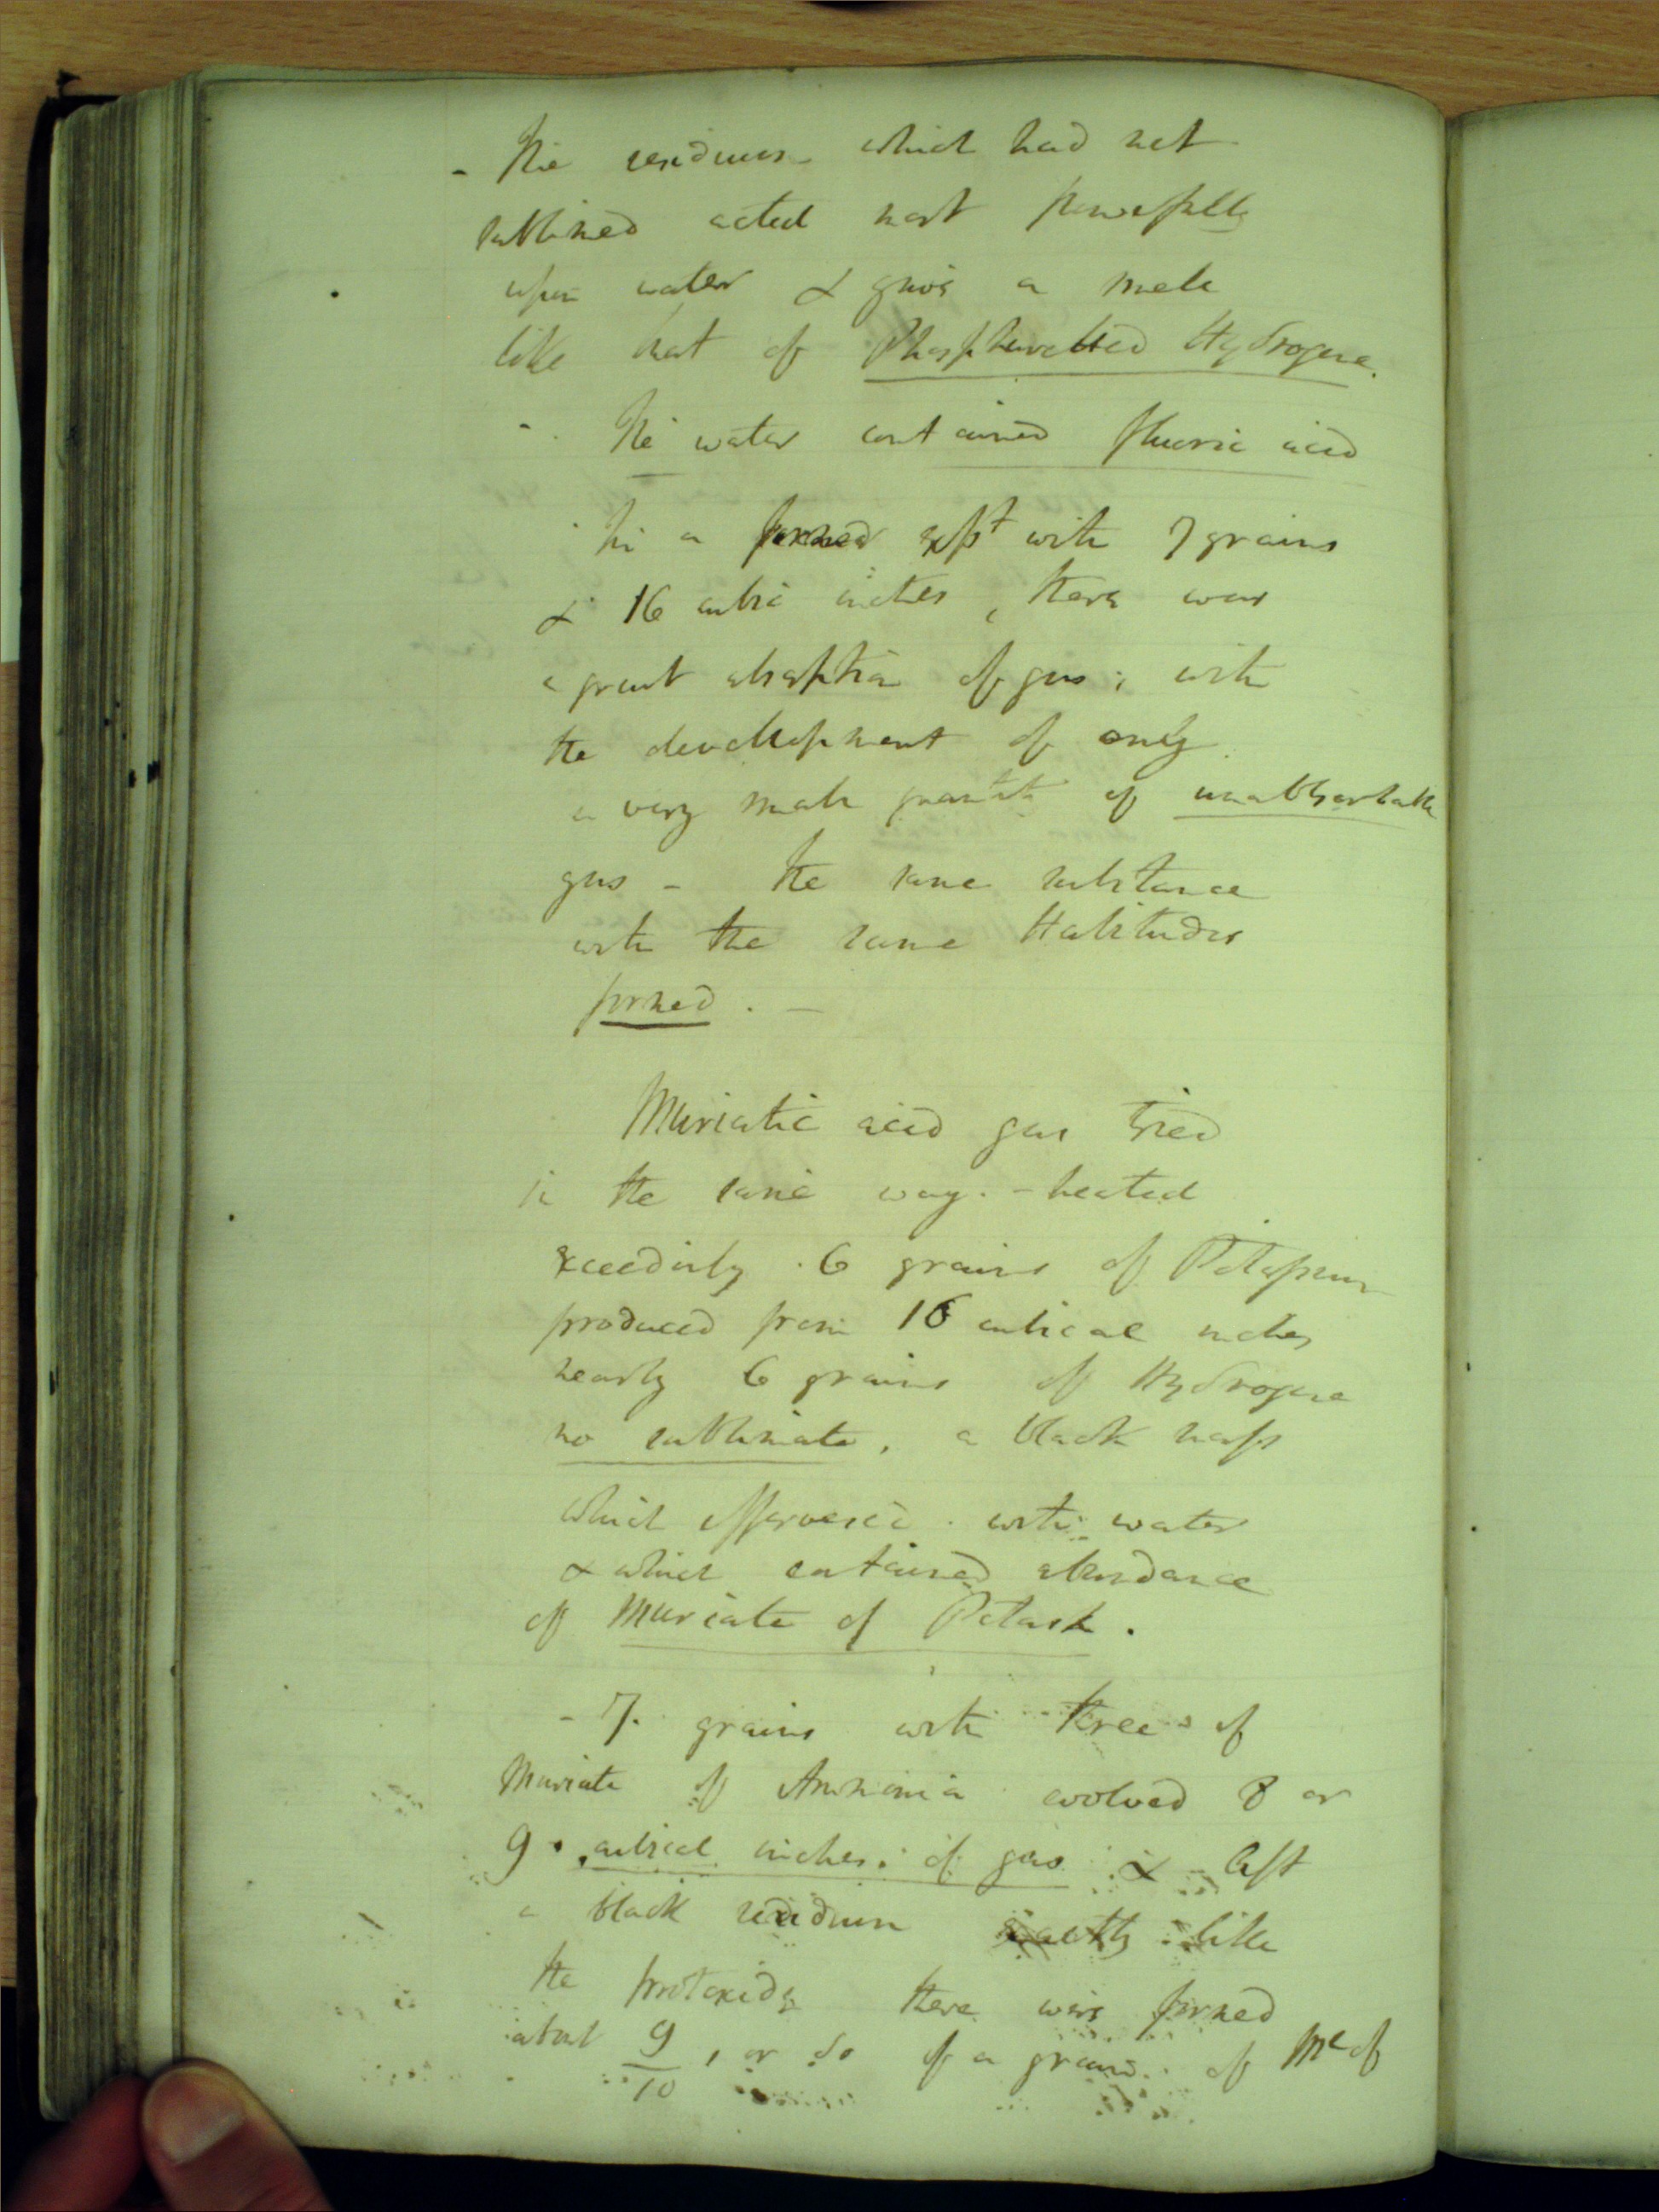 - The residuum which had not
sublimed acted most powerfully
upon water & gives a smell
like that of Phosphuretted Hydrogene.
- The water contained fluoric acid
In a formed exp^t with 7 grains
& 16 cubic inches, there was
a great absorption of gas; with
the development of only
a very small quantity of unabsorbable
gas - The same substance
with the same Habitudes
formed. -
Muriatic acid gas tried
in the same way. - heated
exceedingly. 6 grains of Potassium
produced from 16 cubical inches
nearly 6 grains of Hydrogene
no sublimate, a black mass
which effervesced with water
& which contained abundance
of Muriate of Potash.
- 7. grains with three of
Muriate of Ammonia evolved 8 or
9. cubical inches of gas & left
a black residuum exactly like
the protoxide there were formed
about 9/10, or so of a grain of M^e of